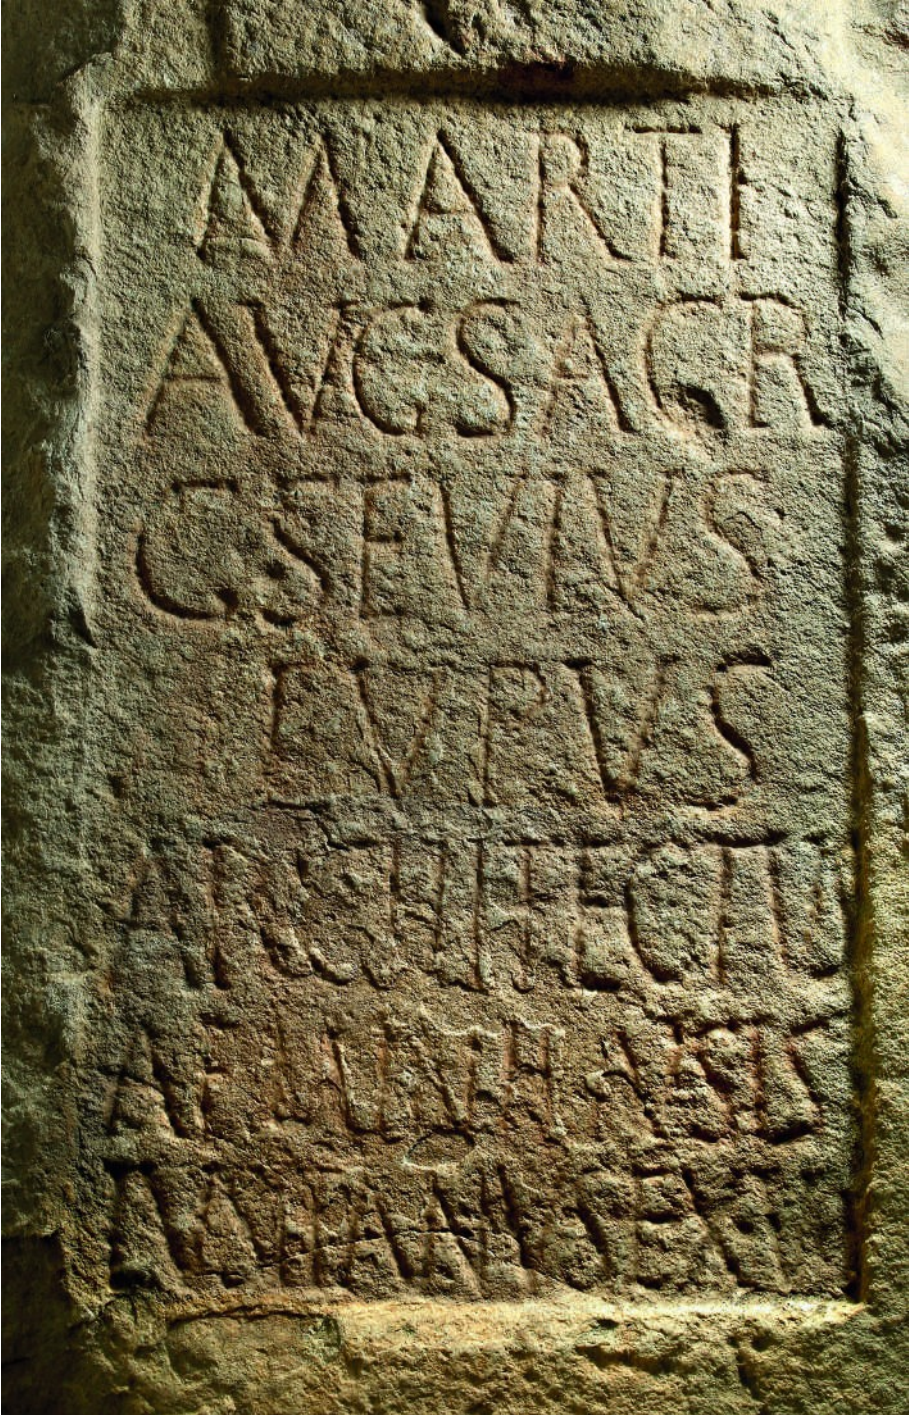 MARTI
AVG SACR
C SEVIVS
LVPVS
ARCHITECTVS
AEMINIENSIS
LVSITANVS EX VO